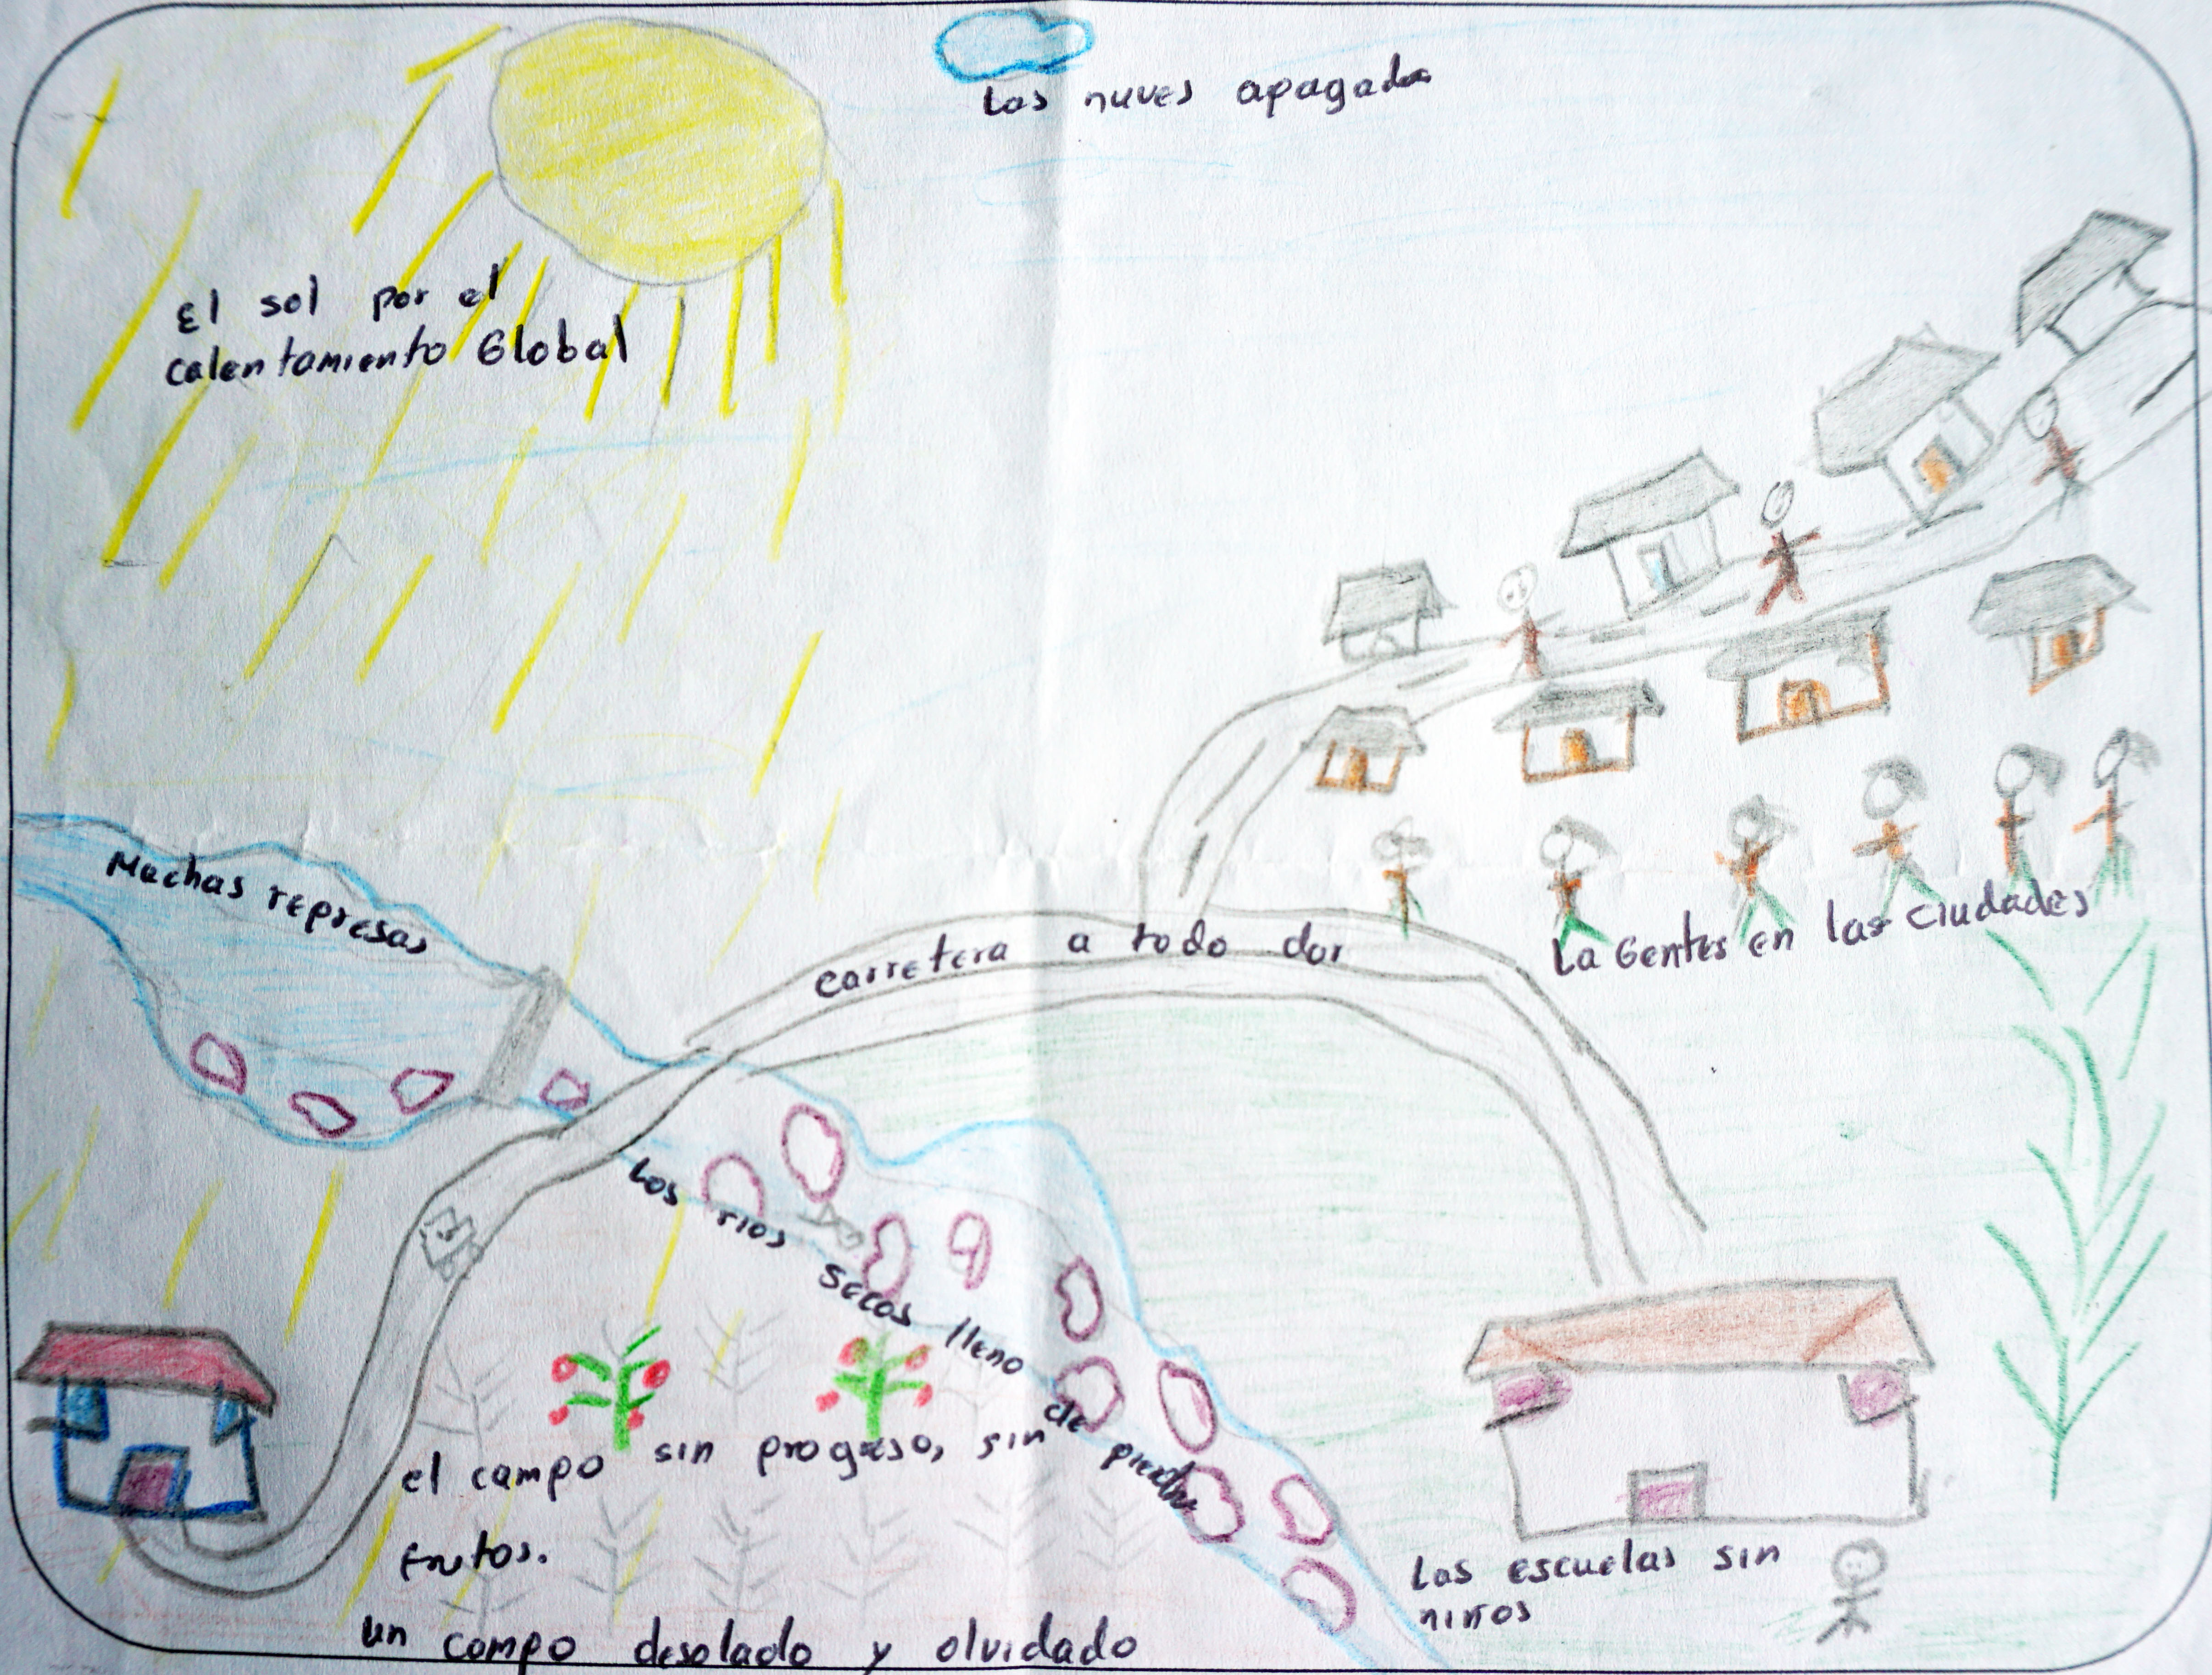 Las nuves apagadas
El sol por el
calentamiento Global
Muchas represas
carretera a todo dar
La Gentes en las ciudades
Los rios secos lleno de piedras
el campo sin progreso, sin
frutos.
Las escuelas sin
niños
un campo desolado y olvidado